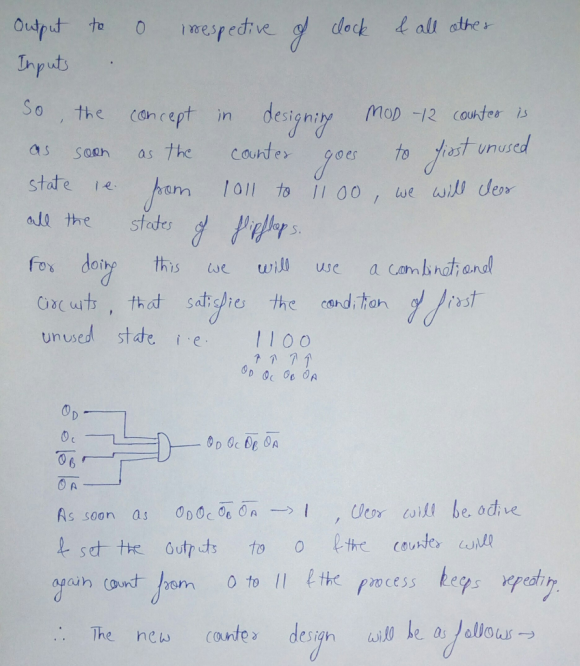 Output to 0 irrespective of clock & all other
Inputs.
So, the concept in designing MOD-12 counter is
as soon as the counter goes to first unused
state i.e. from 1011 to 1100, we will clear
all the states of flipflops.
For doing this we will use a combinational
circuits, that satisfies the condition of first
unused state i.e. 1100
↑ ↑ ↑ ↑
QD QC QB QA
QD
QC
Q̅B̅
Q̅A̅
QD QC Q̅B̅ Q̅A̅
As soon as QD QC Q̅B̅ Q̅A̅ → 1, clear will be active
& set the outputs to 0 & the counter will
again count from 0 to 11 & the process keeps repeating.
∴ The new counter design will be as follows →